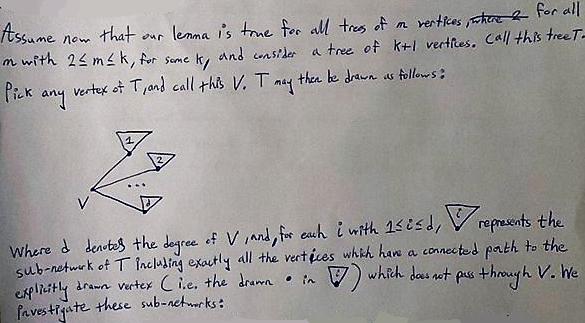 Assume now that our lemma is true for all trees of m vertices, for all
m with 2≤m≤k, for some k, and consider a tree of k+1 vertices. Call this tree T.
Pick any vertex of T, and call this V. T may then be drawn as follows:
1
2
...
V
d
Where d denotes the degree of V, and, for each i with 1≤i≤d, i represents the
sub-network of T including exactly all the vertices which have a connected path to the
explicitly drawn vertex (i.e, the drawn • in i) which does not pass through V. We
investigate these sub-networks: